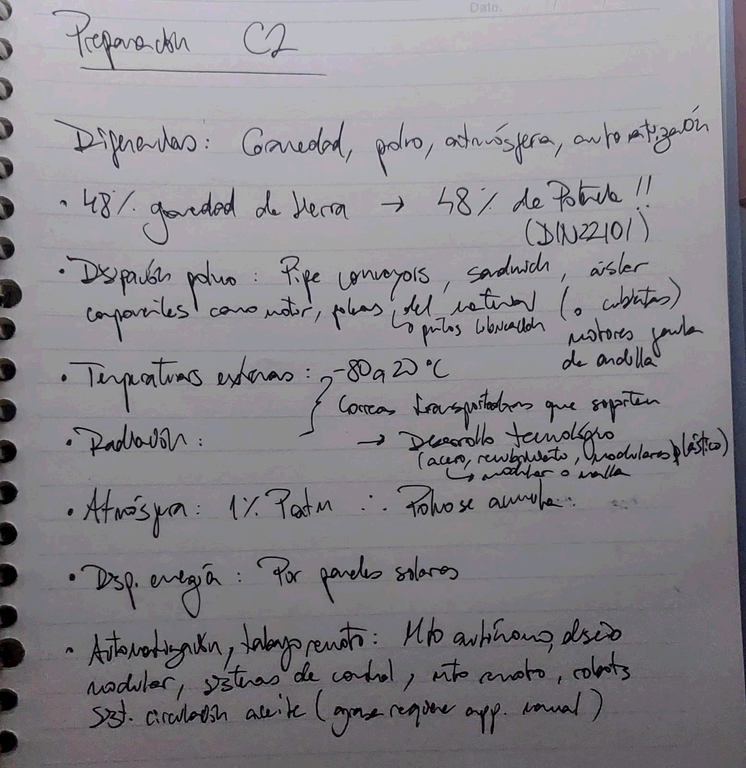 Dato.
Preparación C2
Diferencias: Gravedad, polvo, atmósfera, automatización
• 48% gravedad de tierra → 48% de Potencia!!
(DIN22101)
• Disipación polvo: Pipe conveyors, sandwich, aislar
componentes como motor, poleas, del material (o cubiertas)
↳ ptos lubricación motores jaula
de ardilla
• Temperaturas extremas: -80 a 20 °C
Correas transportadoras que soporten
• Radiación: → Desarrollo tecnológico
(acero, recubrimiento, modulares plástico)
↳ modular o malla
• Atmósfera: 1% Patm ∴ Polvo se acumula:
• Disp. energía: Por paneles solares
• Automatización, trabajo remoto: Mto autónomo, diseño
modular, sistemas de control, mto remoto, robots
sist. circulación aceite (grasa requiere app. manual)